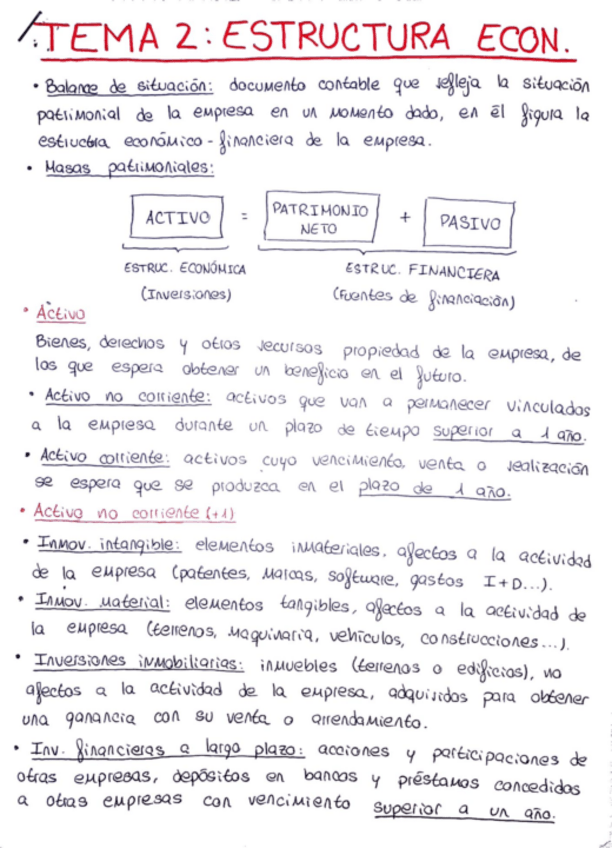 TEMA 2: ESTRUCTURA ECON.
• Balance de situación: documento contable que refleja la situación
patrimonial de la empresa en un momento dado, en él figura la
estructura económico-financiera de la empresa.
• Masas patrimoniales:
ACTIVO = PATRIMONIO NETO + PASIVO
ESTRUC. ECONÓMICA ESTRUC. FINANCIERA
(Inversiones) (Fuentes de financiación)
• Activo
Bienes, derechos y otros recursos propiedad de la empresa, de
los que espera obtener un beneficio en el futuro.
• Activo no corriente: activos que van a permanecer vinculados
a la empresa durante un plazo de tiempo superior a 1 año.
• Activo corriente: activos cuyo vencimiento, venta o realización
se espera que se produzca en el plazo de 1 año.
• Activo no corriente (+1)
• Inmov. intangible: elementos inmateriales, afectos a la actividad
de la empresa (patentes, marcas, software, gastos I+D...).
• Inmov. material: elementos tangibles, afectos a la actividad de
la empresa (terrenos, maquinaria, vehículos, construcciones...).
• Inversiones inmobiliarias: inmuebles (terrenos o edificios), no
afectos a la actividad de la empresa, adquiridos para obtener
una ganancia con su venta o arrendamiento.
• Inv. financieras a largo plazo: acciones y participaciones de
otras empresas, depósitos en bancos y préstamos concedidos
a otras empresas con vencimiento superior a un año.